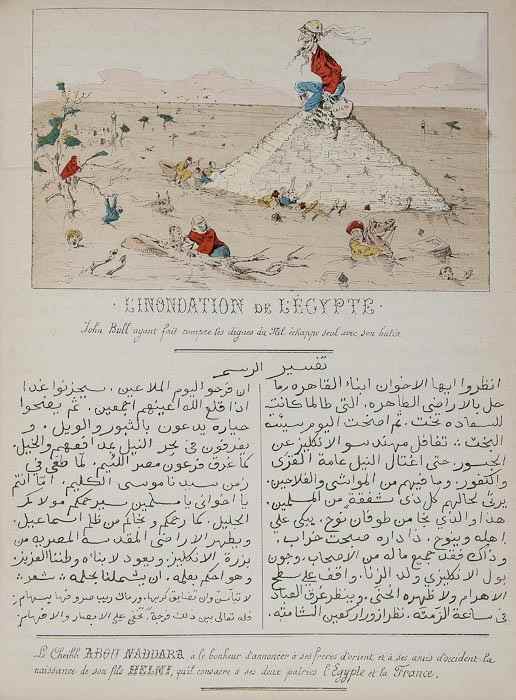 L'INONDATION DE L'ÉGYPTE
John Bull ayant fait rompre les digues du Nil échappe seul avec son butin
تفسير الرسم
انظروا ايها الاخوان ابناء القاهره رما
حل بالاراضي الطاهره. التي طالما كانت
للسعاده تخت. ثم اضحت اليوم سيئة
البخت. تغافل مهندسو الانكليز عن
الجسور. حتى اغتال النيل عامة القرى
والكفور. وما فيهم من المواشي والفلاحين.
يرثى لحالهم كل ذي شفقة من المسلمين.
هذا والذي نجا من طوفان نوح. يبكي على
اهله وينوح. ذا داره صبحت خراب.
و ذاك فقد جميع ماله من الاصحاب. وجون
بول الانكليزي ولد الزنا. واقف على سطح
الاهرام ولا ظهره انحنى. وينظر غرق العباد
في ساعة الزمتة. نظر ازورار كعين الشامته.
ان فرحوا اليوم الملاعين. سيحزنوا غدا
اذا قلع الله اعينهم اجمعين. ثم يضحوا
حيارة يدعون بالثبور والويل. و
يغرقون في بحر النيل بمدافعهم والخيل.
كما غرق فرعون مصر اللئيم. لما طغى في
زمن سيدنا موسى الكليم. اما انتم
يا اخواني يا مسلمين سيرحمكم مولاكم
الجليل. كما رحمكم ونجاكم من ظلم اسماعيل.
ويطهر الاراضي المقدسة المصريه من
بزرة الانكليز. ويعود لابناه وطننا العزيز.
وهو احكم بفعله. ان يشملنا بحلمه: شعر:
لا تيأسن وان تضايق كربها. ورماك ريب صروفها بسهام.
فله تعالى بين ذلك فرجة. تخفى على الابصار والافهام.
Le Cheikh ABOU NADDARA, a le bonheur d'annoncer à ses frères d'orient et à ses amis d'occident la
naissance de son fils HELMI, qu'il consacre à ses deux patries l'Egypte et la France.